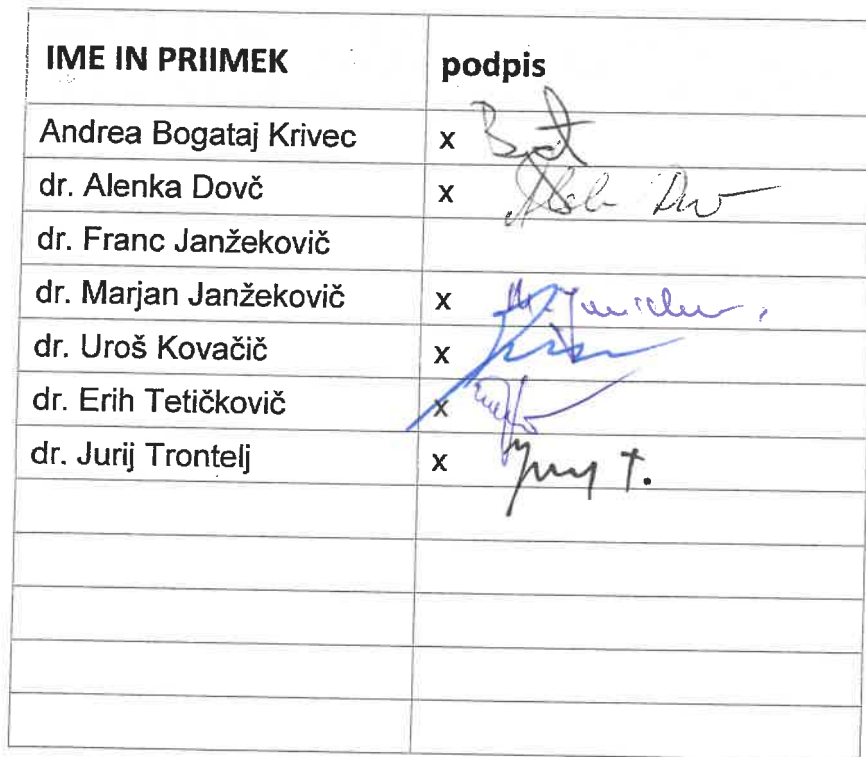 IME IN PRIIMEK podpis
Andrea Bogataj Krivec x
dr. Alenka Dovč x
dr. Franc Janžekovič
dr. Marjan Janžekovič x
dr. Uroš Kovačič x
dr. Erih Tetičkovič x
dr. Jurij Trontelj x